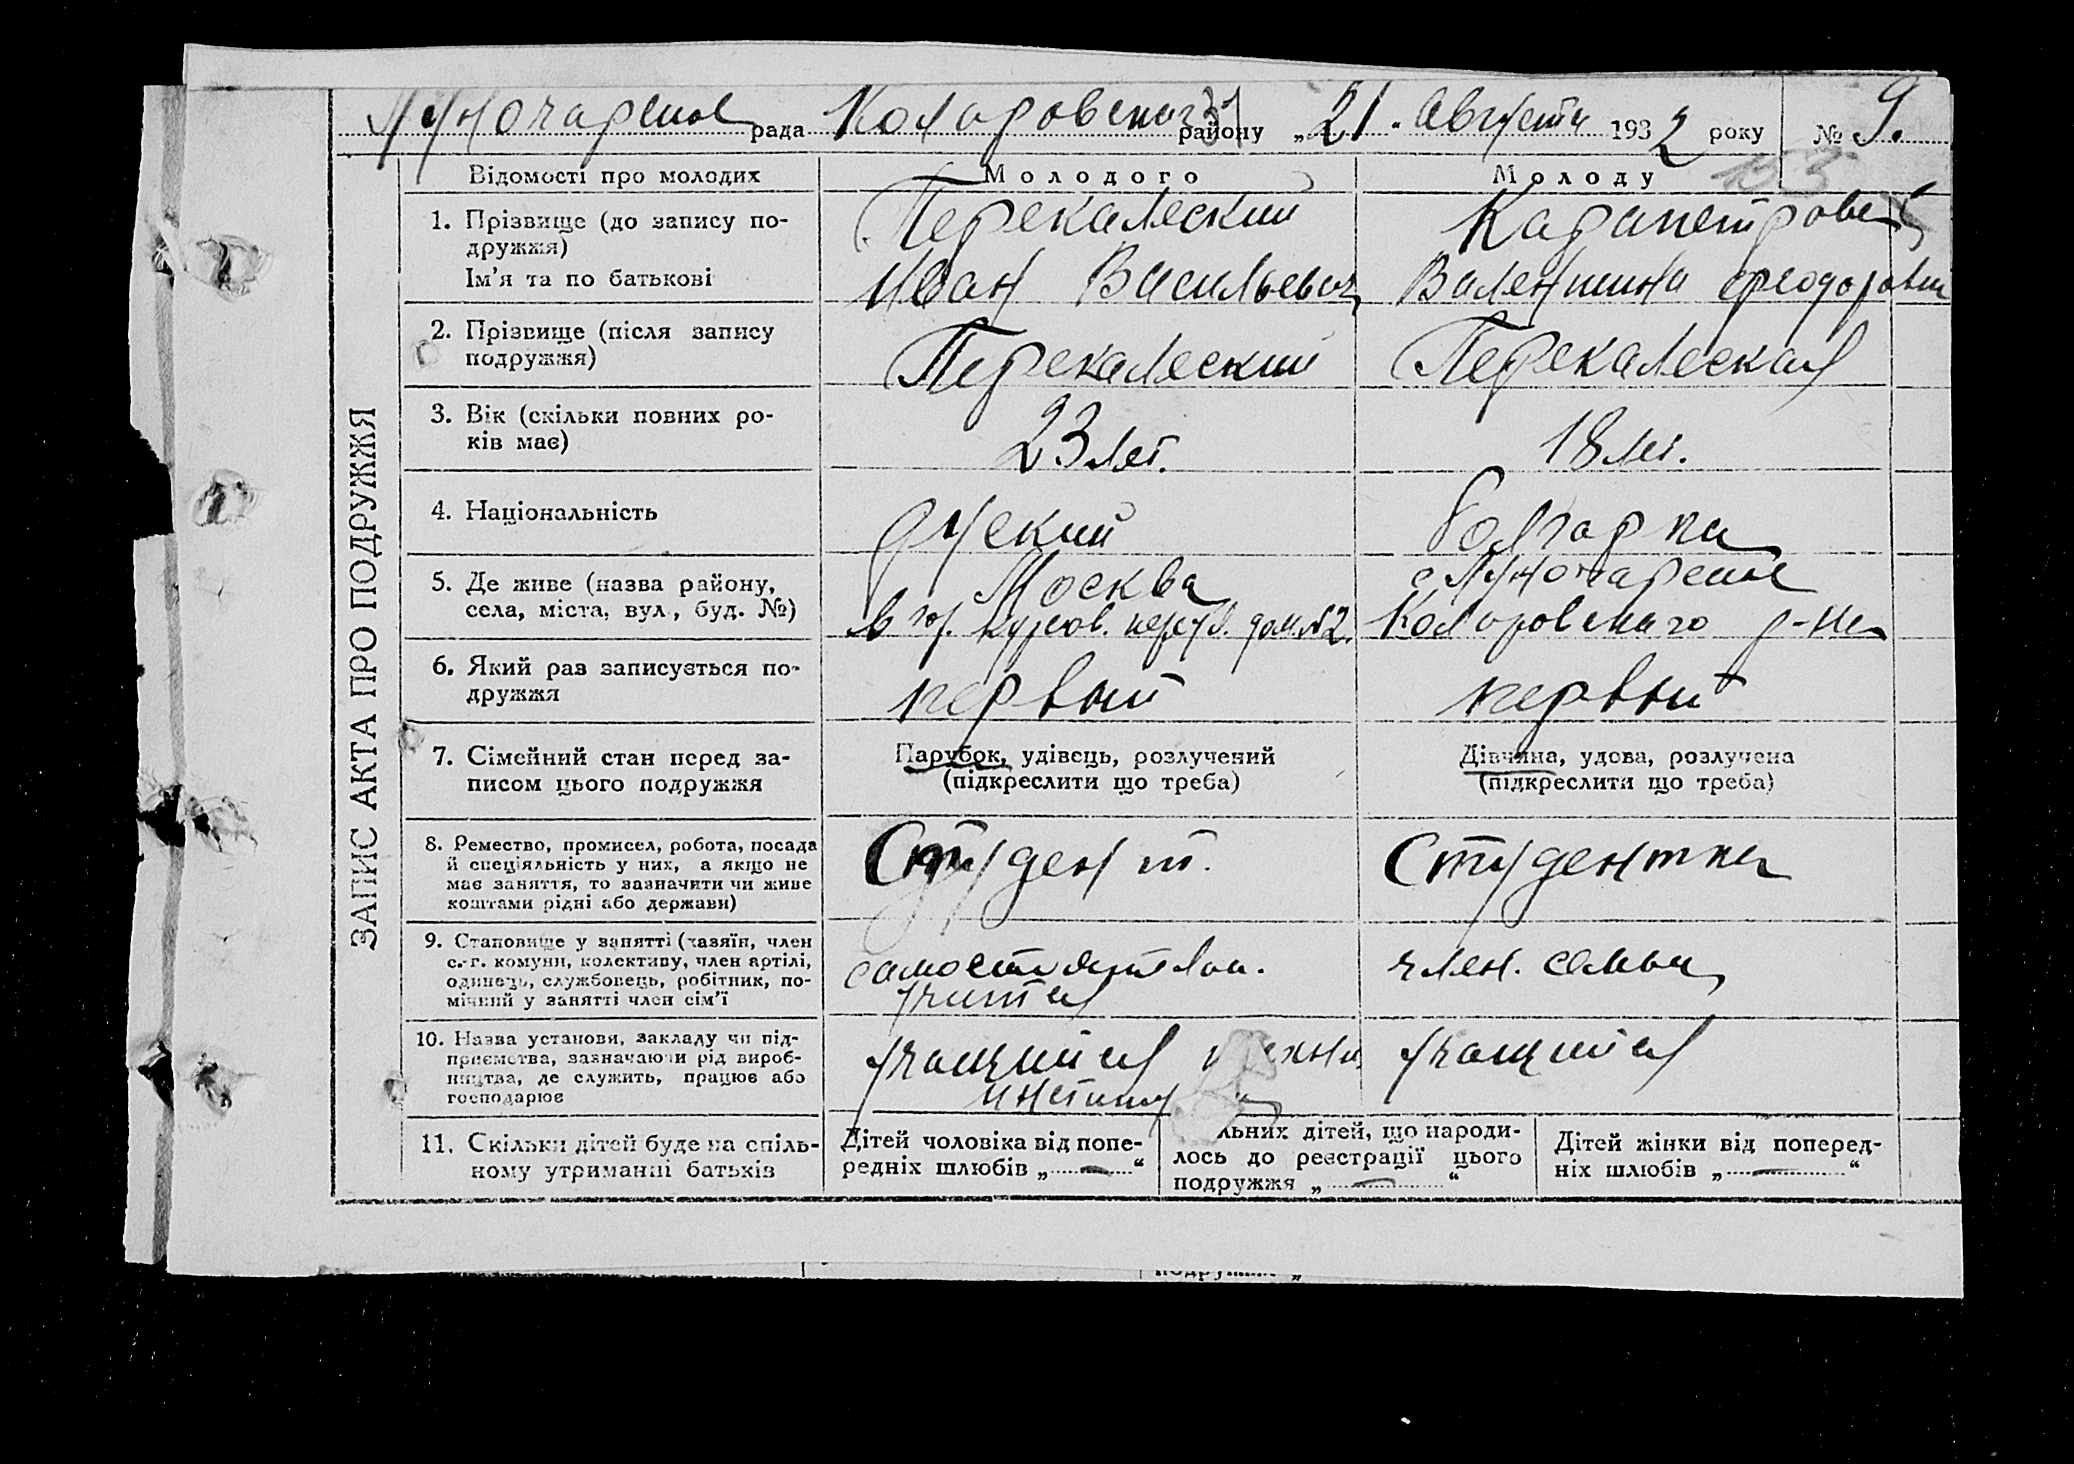 Луночарское рада Коларовского району „21“ Августа 1932 року № 9.
153
ЗАПИС АКТА ПРО ПОДРУЖЖЯ
Відомості про молодих
Молодого
Молоду
1. Прізвище (до запису по-
дружжя)
Ім'я та по батькові
Перекалеский
Иван Васильевич
Карапетрова
Валентина Феодоровн
2. Прізвище (після запису
подружжя)
Перекалеский
Перекалеская
3. Вік (скільки повних ро-
ків має)
23 лет.
18 лет.
4. Національність
руский
болгарка
5. Де живе (назва району,
села, міста, вул., буд. №)
Москва
дом №2.
с Луночарское
Коларовского р-на
6. Який раз записується по-
дружжя
первый
первый
7. Сімейний стан перед за-
писом цього подружжя
Парубок, удівець, розлучений
(підкреслити що треба)
Дівчина, удова, розлучена
(підкреслити що треба)
8. Ремество, промисел, робота, посада
й спеціяльність у них, а якщо не
має заняття, то зазначити чи живе
коштами рідні або держави)
Студент.
Студентка
9. Становище у занятті (хазяїн, член
с.-г. комуни, колективу, член артілі,
одинець, службовець, робітник, по-
мічний у занятті член сім'ї
самостоятельн.
учится
член. семьи
10. Назва установи, закладу чи під-
приємства, зазначаючи рід вироб-
ництва, де служить, працює або
господарює
учащийся
учащийся
11. Скільки дітей буде на спіль-
ному утриманні батьків
Дітей чоловіка від попе-
редніх шлюбів „ — “
льних дітей, що народи-
лось до реєстрації цього
подружжя „ — “
Дітей жінки від поперед-
ніх шлюбів „ — “